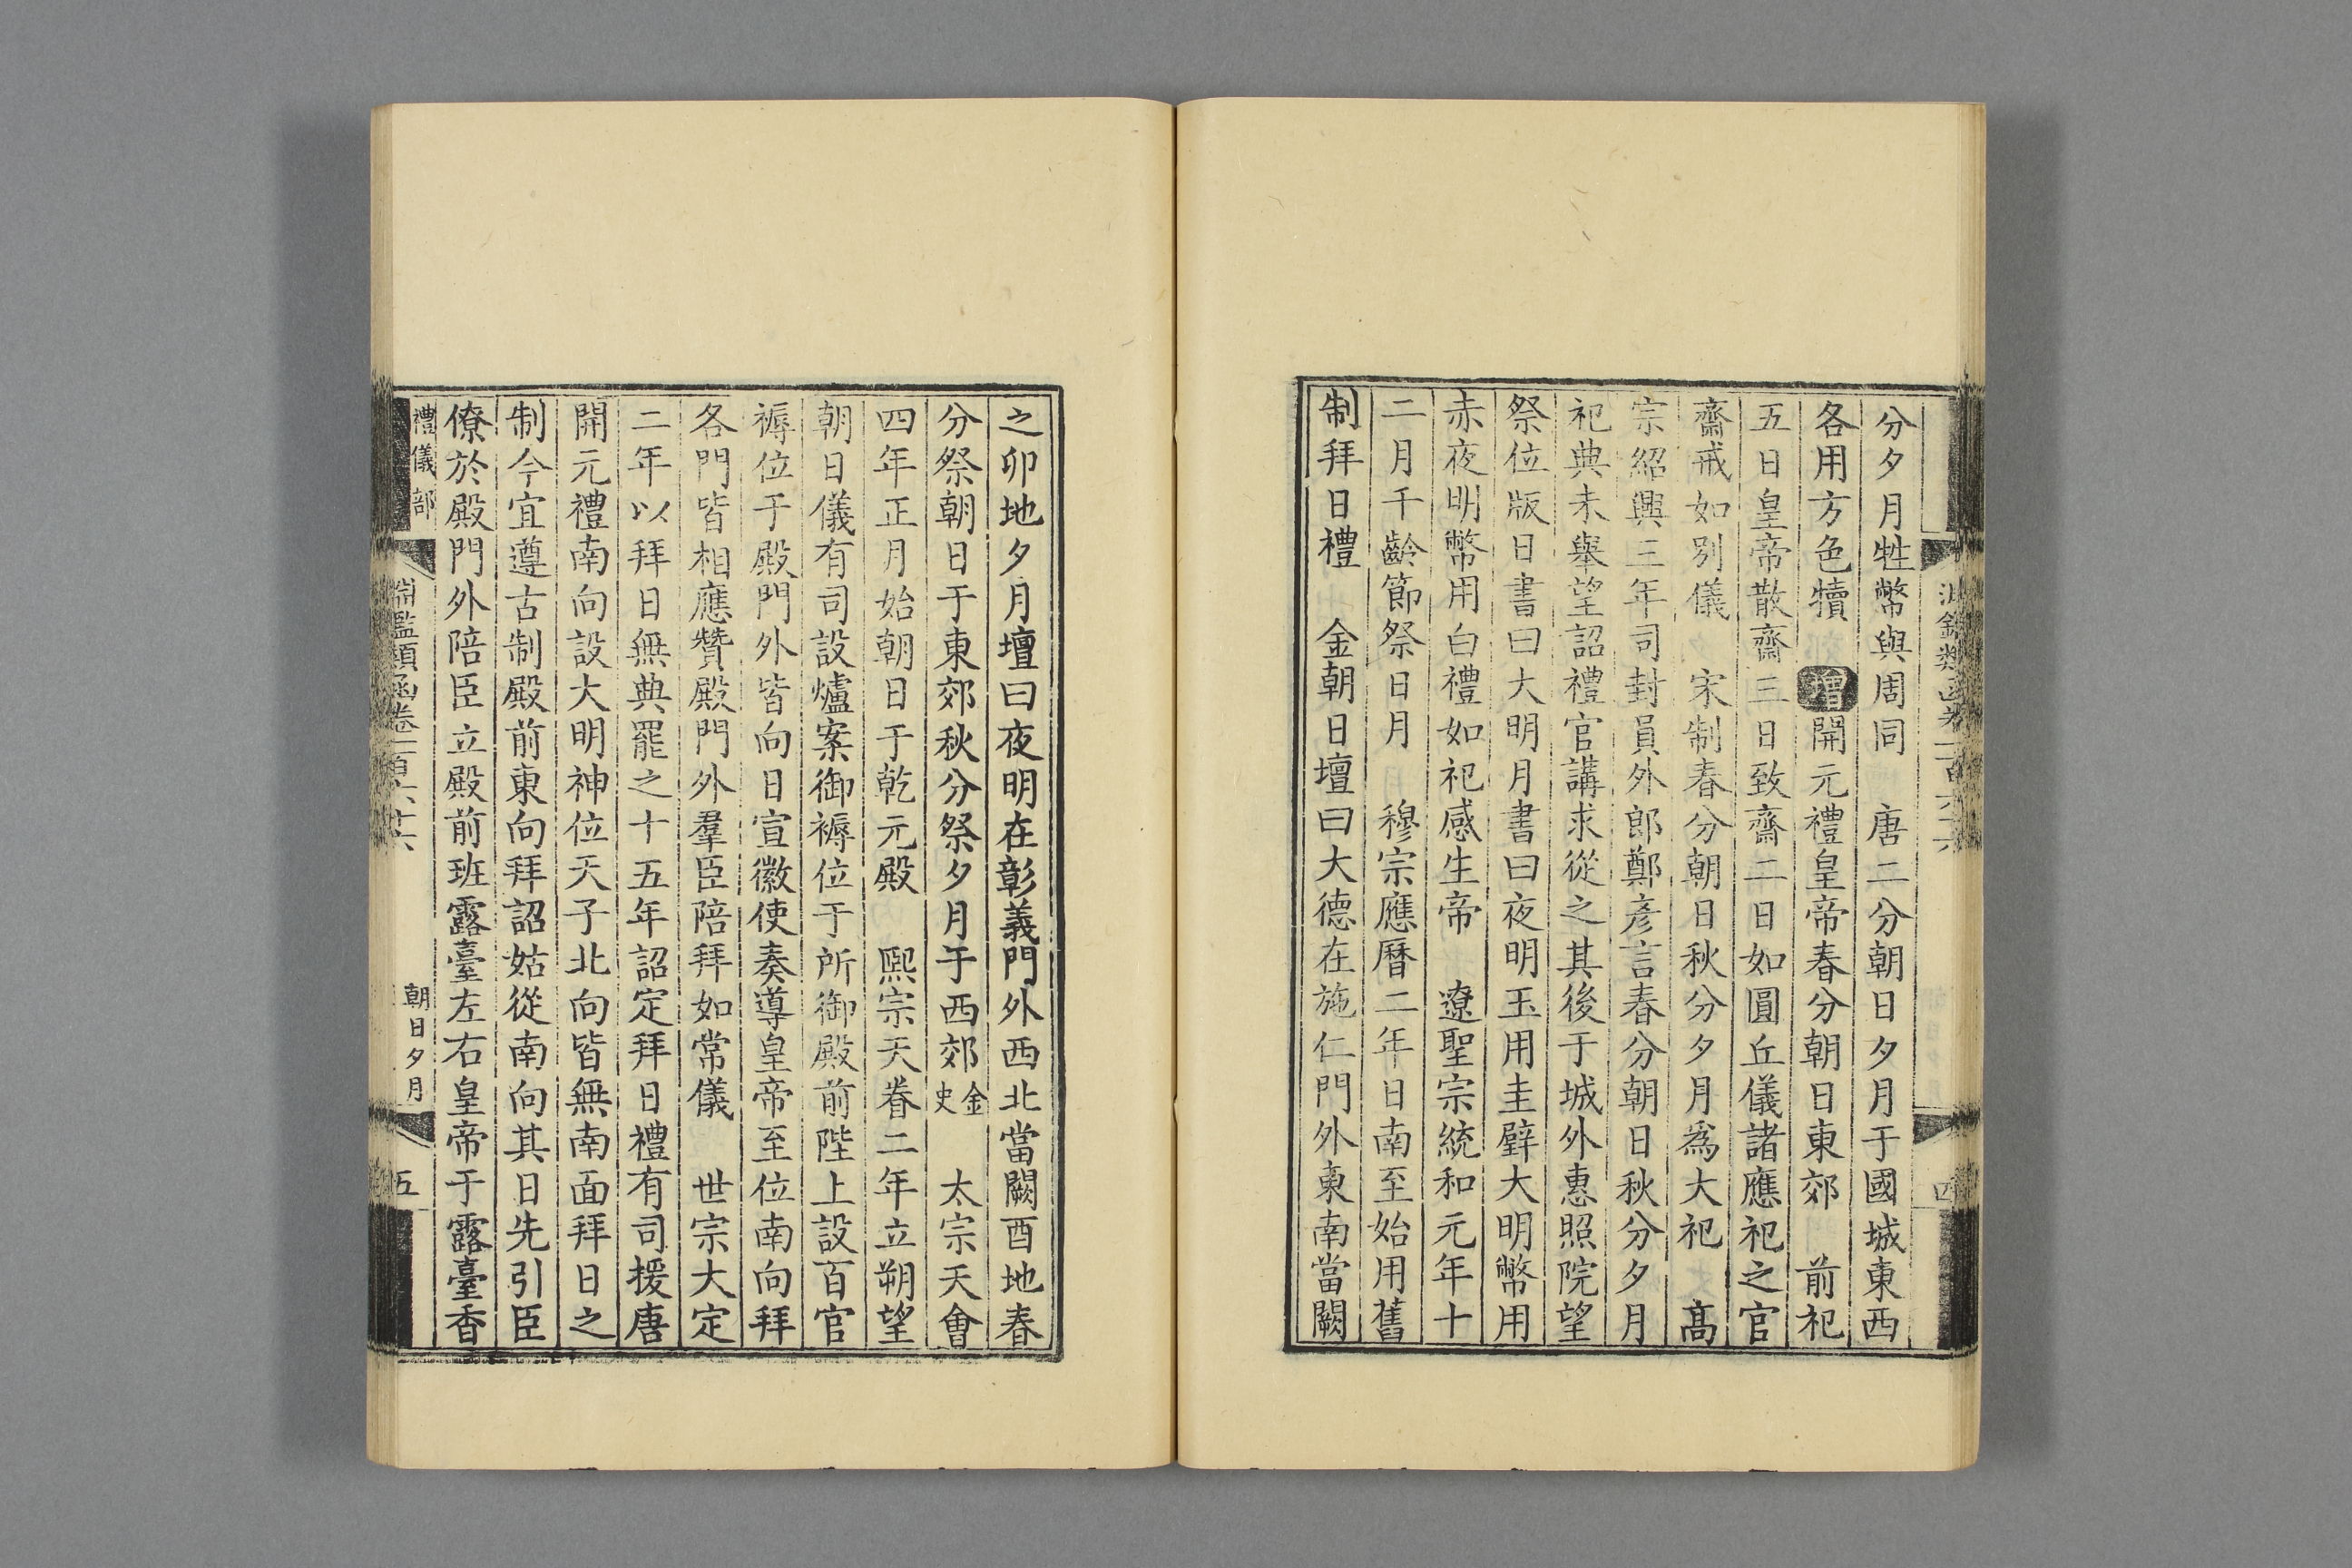 分夕月牲幣與周同　唐二分朝日夕月于國城東西
各用方色犢　增開元禮皇帝春分朝日東郊　前祀
五日皇帝散齋三日致齋二日如圓丘儀諸應祀之官
齋戒如別儀　宋制春分朝日秋分夕月爲大祀　髙
宗紹興三年司封員外郎鄭彥言春分朝日秋分夕月
祀典未舉望詔禮官講求從之其後于城外惠照院望
祭位版日書曰大明月書曰夜明玉用圭璧大明幣用
赤夜明幣用白禮如祀感生帝　遼聖宗統和元年十
二月千齡節祭日月　穆宗應曆二年日南至始用舊
制拜日禮　金朝日壇曰大德在施仁門外東南當闕
之卯地夕月壇曰夜明在彰義門外西北當闕酉地春
分祭朝日于東郊秋分祭夕月于西郊金史　太宗天會
四年正月始朝日于乾元殿　熙宗天眷二年立朔望
朝日儀有司設爐案御褥位于所御殿前陛上設百官
褥位于殿門外皆向日宣徽使奏導皇帝至位南向拜
各門皆相應贊殿門外羣臣陪拜如常儀　世宗大定
二年以拜日無典罷之十五年詔定拜日禮有司援唐
開元禮南向設大明神位天子北向皆無南面拜日之
制今宜遵古制殿前東向拜詔姑從南向其日先引臣
僚於殿門外陪臣立殿前班露臺左右皇帝于露臺香
禮儀部
淵鑑類函卷一百六十六
朝日夕月
五